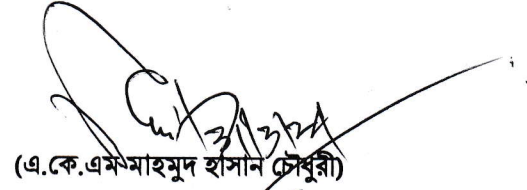 (এ.কে.এম মাহমুদ হাসান চৌধুরী)